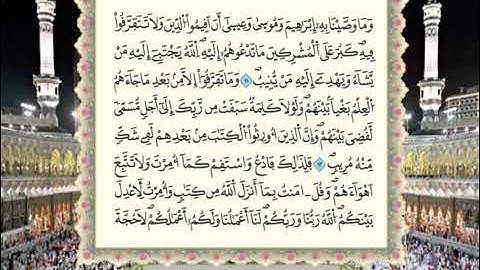 وَمَا وَصَّيْنَا بِهِۦٓ إِبْرَٰهِيمَ وَمُوسَىٰ وَعِيسَىٰٓ أَنَ اَقِيمُواْ الدِّينَ وَلَا تَتَفَرَّقُواْ
فِيهِۖ كَبُرَ عَلَى اَلْمُشْرِكِينَ مَا تَدْعُوهُمُۥٓ إِلَيْهِۖ اِللَّهُ يَجْتَبِےٓ إِلَيْهِ مَنْ
يَّشَآءُ وَيَهْدِےٓ إِلَيْهِ مَنْ يُّنِيبُۖ ١١ وَمَا تَفَرَّقُوٓاْ إِلَّا مِنۢ بَعْدِ مَا جَآءَهُمُ
الْعِلْمُ بَغْياَۢ بَيْنَهُمْۖ وَلَوْلَا كَلِمَةٞ سَبَقَتْ مِن رَّبِّكَ إِلَىٰٓ أَجَلٖ مُّسَمّىٗ
لَّقُضِيَ بَيْنَهُمْۖ وَإِنَّ الذِينَ أُورِثُواْ الْكِتَٰبَ مِنۢ بَعْدِهِمْ لَفِے شَكّٖ
مِّنْهُ مُرِيبٖۖ ١٢ فَلِذَٰلِكَ فَادْعُۖ وَاسْتَقِمْ كَمَآ أُمِرْتَۖ وَلَا تَتَّبِعَ
اَهْوَآءَهُمْۖ وَقُلَ اٰمَنتُ بِمَآ أَنزَلَ اللَّهُ مِن كِتَٰبٖۖ وَأُمِرْتُ لِأَعْدِلَ
بَيْنَكُمُۖ اُللَّهُ رَبُّنَا وَرَبُّكُمْۖ لَنَآ أَعْمَٰلُنَا وَلَكُمُۥٓ أَعْمَٰلُكُمْۖ لَا حُجَّةَ